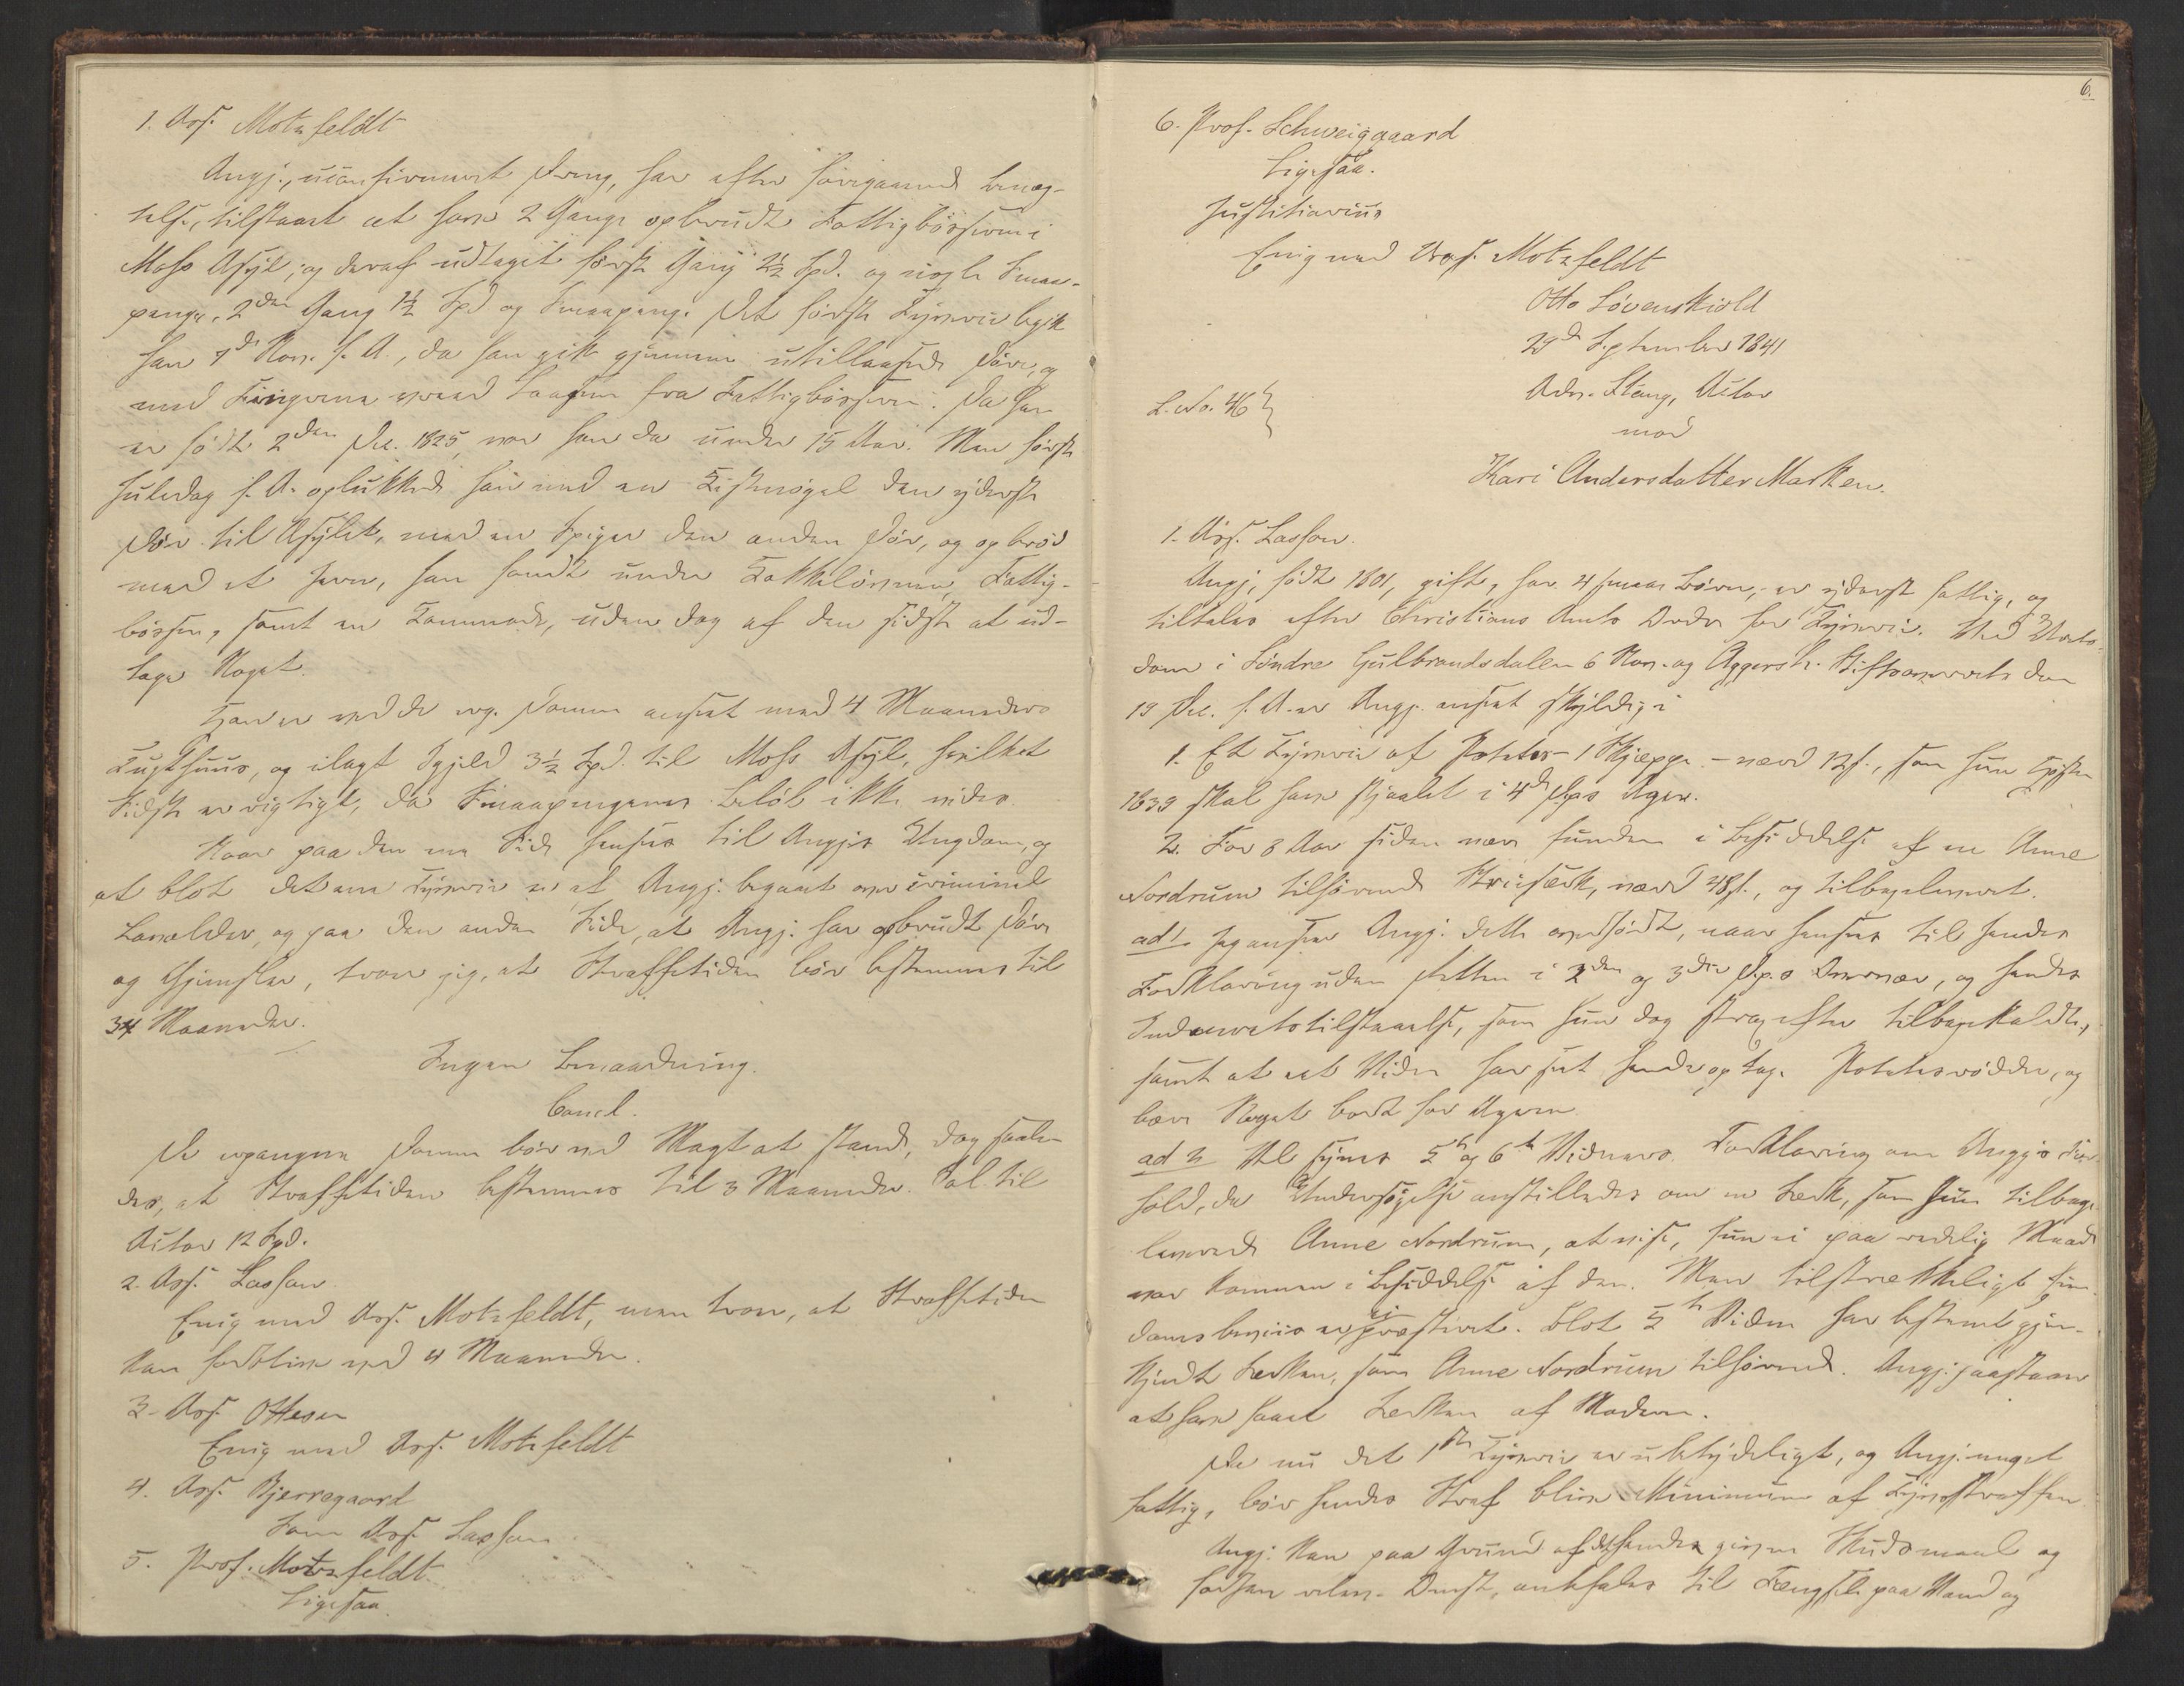 1. Ass. Motzfeldt
Angj., uconfirmeret Dreng, har efter foregaaende Benæg-
telse, tilstaaet at have 2 Gange opbrudt Fattigbøsserne i
Moss Asyl, og deraf udtaget første Gang 2½ Spd. og nogle Smaa-
penge, 2den Gang 1½ Spd og Smaapenge. Det første Tyverie begik
han 7de Nov. f. A., da han gik gjennem utillaasede Døre, og
med Fingrene vred Laasen fra Fattigbøssen. Da han
er født 2den Dec. 1825, var han da under 15 Aar. Men første
Juledag f. A. oplukkede han med en Kistenøgel den yderste
Dør til Asylet, med en Spiger den anden Dør, og opbrød
med et Jern, han fandt under Kakkelovnen, Fattig-
bøssen, samt en Commode, uden dog af den sidste at ud-
tage Noget.
Han er ved de vg. Domme anseet med 4 Maaneders
Tugthuus, og ilagt Igjeld 3½ Spd. til Moss Asyl, hvilket
Sidste er rigtigt, da Smaapengenes Beløb ikke vides.
Naar paa den ene Side henses til Angjs Ungdom, og
at blot det ene Tyverie er af Angj. begaaet over criminel
Lavalder, og paa den anden Side, at Angj. har opbrudt Døre
og Gjemsler, troer jeg, at Straffetiden bør bestemmes til
3 Maaneder.
Ingen Benaadning.
Concl.
De vpaagjen Domme bør ved Magt at stande, dog saale-
des, at Straffetiden bestemmes til 3 Maaneder. Sal. til
Actor 12 Spd.
2. Ass. Lasson
Enig med Ass. Motzfeldt, men troer, at Straffetiden
kan forblive ved 4 Maaneder.
3. Ass. Ottesen
Enig med Ass. Motzfeldt
4. Ass. Bjerregaard
Som Ass. Lasson
5. Prof. Motzfeldt
Ligesaa
6.
6. Prof. Schweigaard
Ligesaa.
Justitiarius
Enig med Ass. Motzfeldt
Otto Løvenskiold
29de September 1841
L. No. 46
Adv. Stang, Actor
mod
Kari Andersdatter Marken.
1. Ass. Lasson.
Angj., født 1801, gift, har 4 smaa Børn, er yderst fattig, og
tiltales efter Christians Amts Ordre for Tyverie. Ved Extra-
dom i Søndre Gulbrandsdalen 6 Nov. og Aggersh. Stiftsoverrets Dom
19 Dec. f. A. er Angj. anseet skyldig i
1. Et Tyverie af Poteter - 1 Skjeppe - værd 12 s., som hun Høsten
1839 skal have stjaalet i 4de Dep.s Ager.
2. For 8 Aar siden være funden i Besiddelse af en Anne
Nordrum tilhørende Striesærk, værd 48 s., og tilbageleveret.
ad 1. Jeg anseer Angj. dette overført, naar henses til hendes
Forklaring uden Retten i 2den og 3die Dep.s Overvær, og hendes
Indenretstilstaaelse, som hun dog strax efter tilbagekaldte,
samt at eet Vidne har seet hende optage Potetesrødder, og
bære Noget bort fra Ageren.
ad 2 Vel synes 5te og 6te Vidners Forklaring om Angjs For-
hold, da Undersøgelse anstilledes om en Særk, som hun tilbage-
leverede Anne Nordrum, at vise, hun ei paa redelig Maade
var kommen i Besiddelse af den. Men tilstrækkeligt Eien-
domsbeviis er ei præsteret. Blot 5te Vidne har bestemt gjen-
kjendt Særken, som Anne Nordrum tilhørende. Angj. paastaaer
at have faaet Særken af Moderen.
Da nu det 1ste Tyverie er ubetydeligt, og Angj. meget
fattig, bør hendes Straf blive Minimum af Tyvsstraffen.
Angj. kan paa Grund af det hende givne Skudsmaal og
hendes Dunst, anbefales til Fængsel paa Vand og